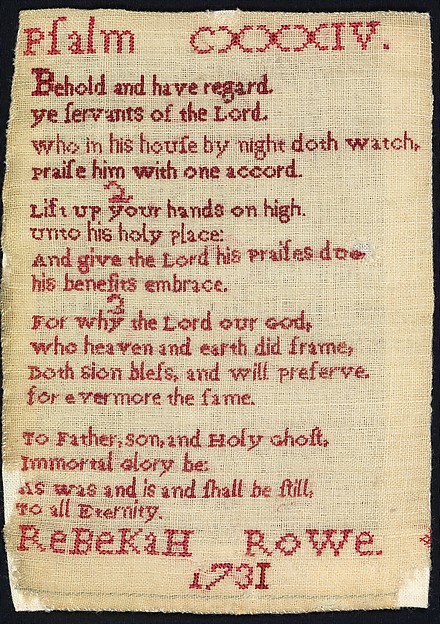 Pſalm CXXXIV.
Behold and have regard.
ye ſervants of the Lord.
Who in his houſe by night doth watch,
Praiſe him with one accord.
2
Lift up your hands on high.
Unto his holy place:
And give the Lord his Praiſes due
his benefits embrace.
3
For why the Lord our God,
Who heaven and earth did frame,
Doth Sion bleſs, and will preſerve.
for evermore the ſame.
To Father, son, and Holy Ghoſt,
Immortal Glory be:
As was and is and ſhall be ſtill,
To all Eternity.
ReBeKaH RoWe.
1731